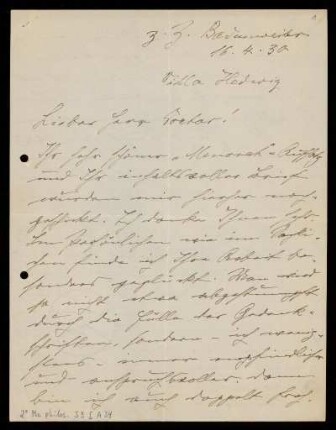 z. Z. Badenweiler
16. 4. 30
Villa Hedwig
Lieber Herr Doctor!
Ihr sehr schöner „Menorah"-Aufsatz
und Ihr inhaltsvoller Brief
wurden mir hieher nach-
geschickt. Ich danke Ihnen sehr.
Im Persönlichen wie im
finde ich Ihre Arbeit be-
sonders geglückt. Man wird
ja nicht etwa abgestumpft
durch die Fülle der Gedenk-
schriften, sondern – ich wenig-
stens – immer empfindlicher
und anspruchsvoller, darum
bin ich auch doppelt froh,
2° Ms philos. 39 I A 34